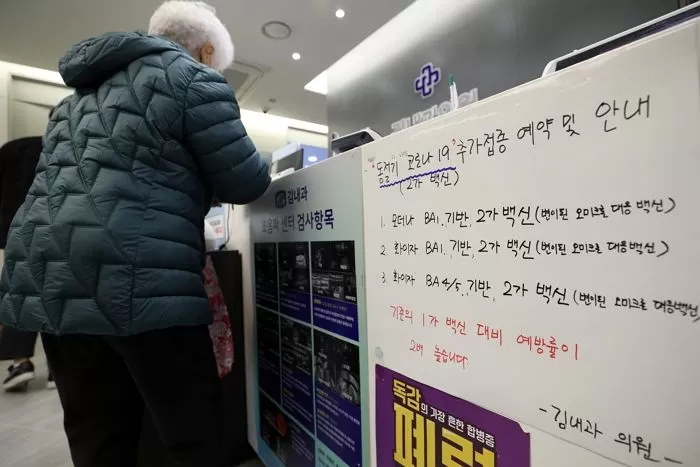 '동절기 코로나19' 추가접종 예약 및 안내
(2가 백신)
1. 모더나 BA1. 기반, 2가 백신 (변이된 오미크론 대응 백신)
2. 화이자 BA1. 기반, 2가 백신 (변이된 오미크론 대응백신)
3. 화이자 BA4/5. 기반, 2가 백신 (변이된 오미크론 대응백신)
기존의 1가 백신 대비 예방률이
2배 높습니다.
- 김내과 의원 -
김내과
초음파 센터 검사항목
독감의 가장 흔한 합병증
폐렴